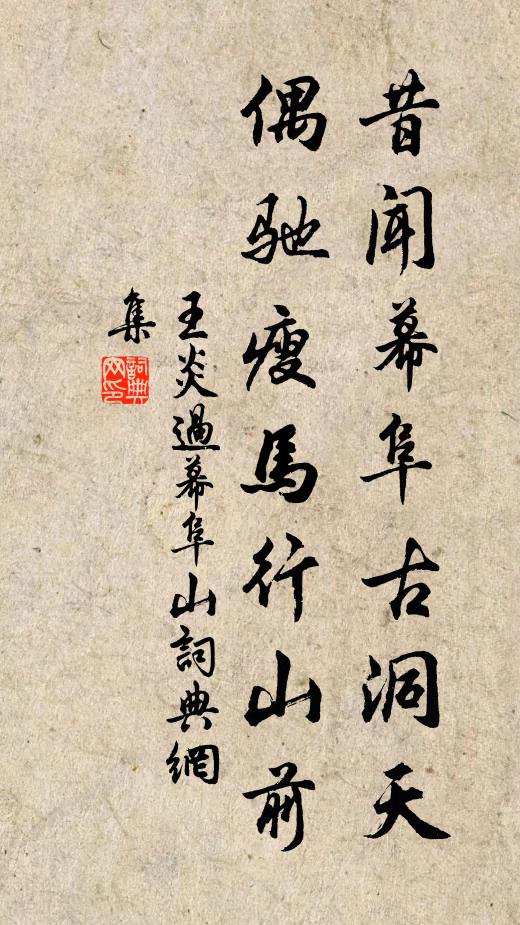 昔聞幕阜古洞天
偶馳瘦馬行山前
王炎過幕阜山詞典網
集
詞典網印